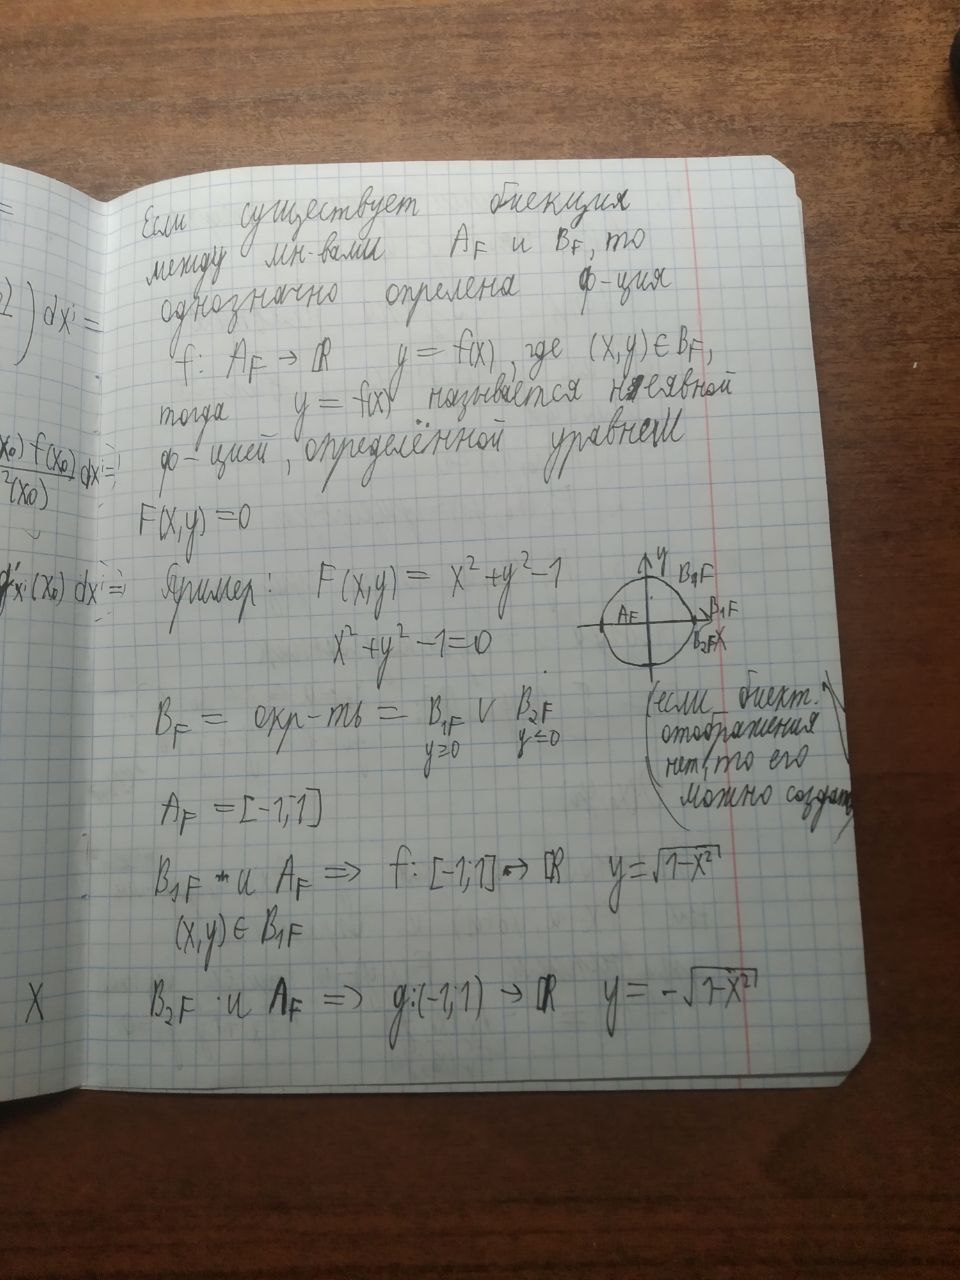 Если существует биекция
между мн-вами A_F и B_F, то
однозначно опрелена ф-ция
f: A_F → ℝ y = f(x), где (x,y) ∈ B_F,
тогда y = f(x) называется неявной
ф-цией, определённой уравнем
F(x,y) = 0
Пример: F(x,y) = x² + y² - 1
x² + y² - 1 = 0
y
A_F
B_1F
B_2F
x
B_F = окр-ть = B_1F ∨ B_2F
y ≥ 0 y ≤ 0
(если биект.
отображения
нет, то его
можно создать)
A_F = [-1; 1]
B_1F и A_F ⇒ f: [-1; 1] → ℝ y = √(1-x²)
(x,y) ∈ B_1F
B_2F и A_F ⇒ g: (-1; 1) → ℝ y = -√(1-x²)
dxⁱ =
(x₀) f(x₀) dxⁱ =
²(x₀)
(x₀) dxⁱ =
X